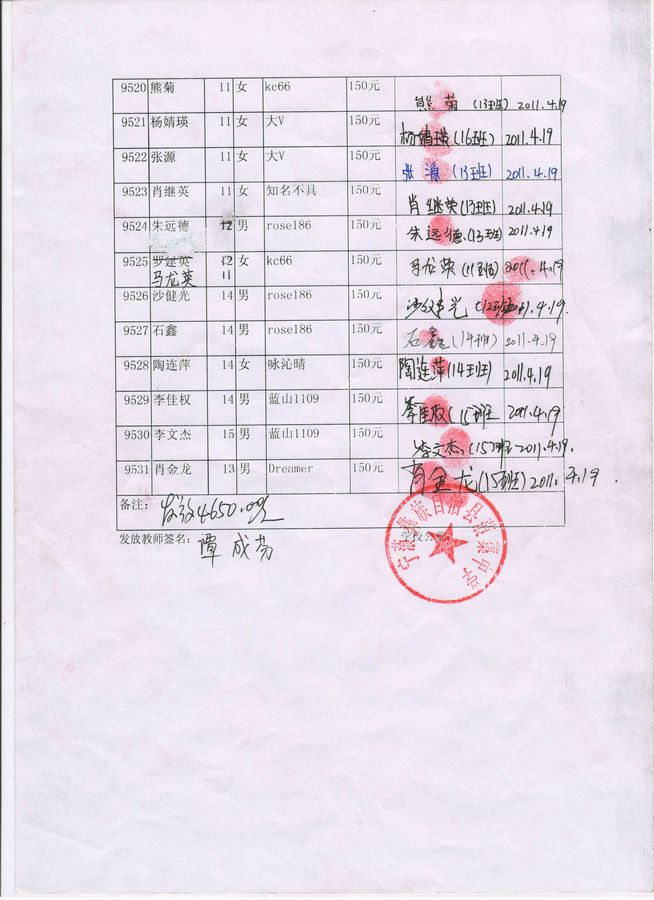 9520 熊菊 11 女 kc66 150元 熊菊 (13班) 2011.4.19
9521 杨婧瑛 11 女 大V 150元 杨婧瑛 (16班) 2011.4.19
9522 张源 11 女 大V 150元 张源 (13班) 2011.4.19
9523 肖继英 11 女 知名不具 150元 肖继英 (13班) 2011.4.19
9524 朱远德 12 男 rose186 150元 朱远德.(13班) 2011.4.19
9525 罗建英 12 女 kc66 150元 马龙英 (11班) 2011.4.19
马龙英 11
9526 沙健光 14 男 rose186 150元 沙健光 (12班) 2011.4.19
9527 石鑫 14 男 rose186 150元 石鑫 (14班) 2011.4.19
9528 陶连萍 14 女 咏沁晴 150元 陶连萍 (14班) 2011.4.19
9529 李佳权 14 男 蓝山1109 150元 李佳权 (15班 2011.4.19
9530 李文杰 15 男 蓝山1109 150元 李文杰.(15班 2011.4.19.
9531 肖金龙 13 男 Dreamer 150元 肖金龙 (15班) 2011.4.19.
备注: 4650.00元
发放教师签名: 谭成芬 学校公章
宁蒗彝族自治县中学